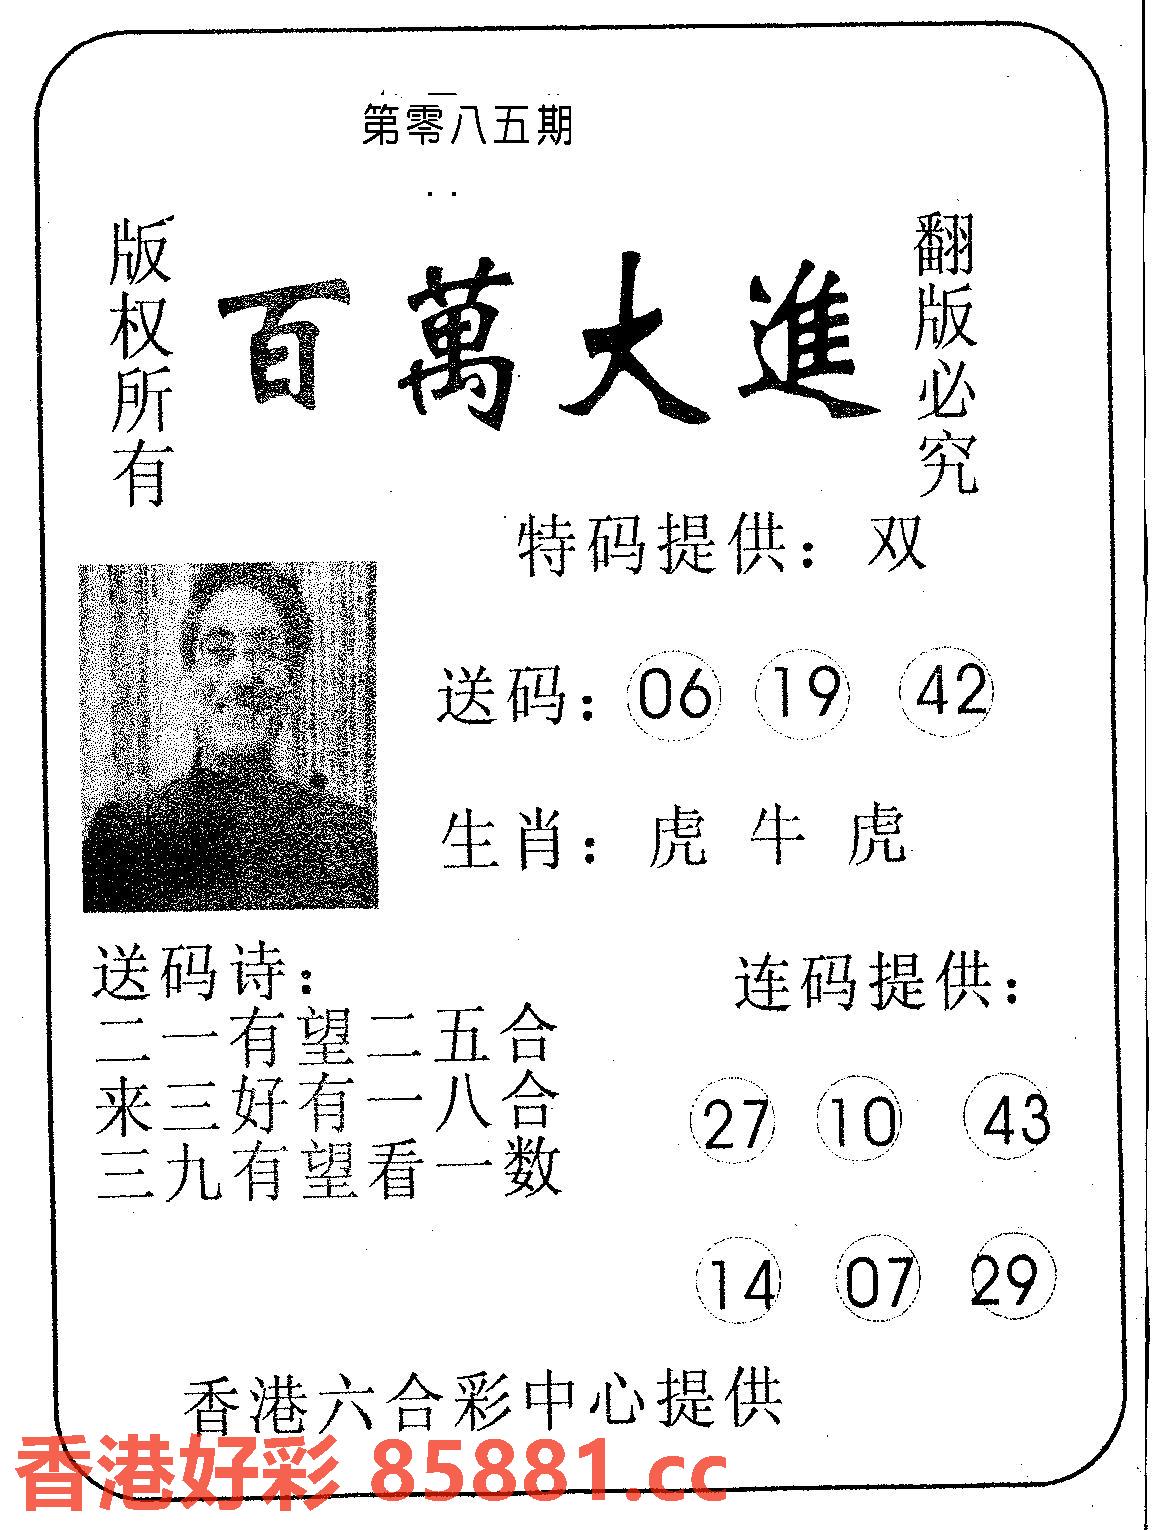 第零八五期
版权所有
百萬大進
翻版必究
特码提供：双
送码：06 19 42
生肖：虎 牛 虎
送码诗：
二一有望二五合
来三好有一八合
三九有望看一数
连码提供：
27 10 43
14 07 29
香港六合彩中心提供
香港好彩 85881.cc